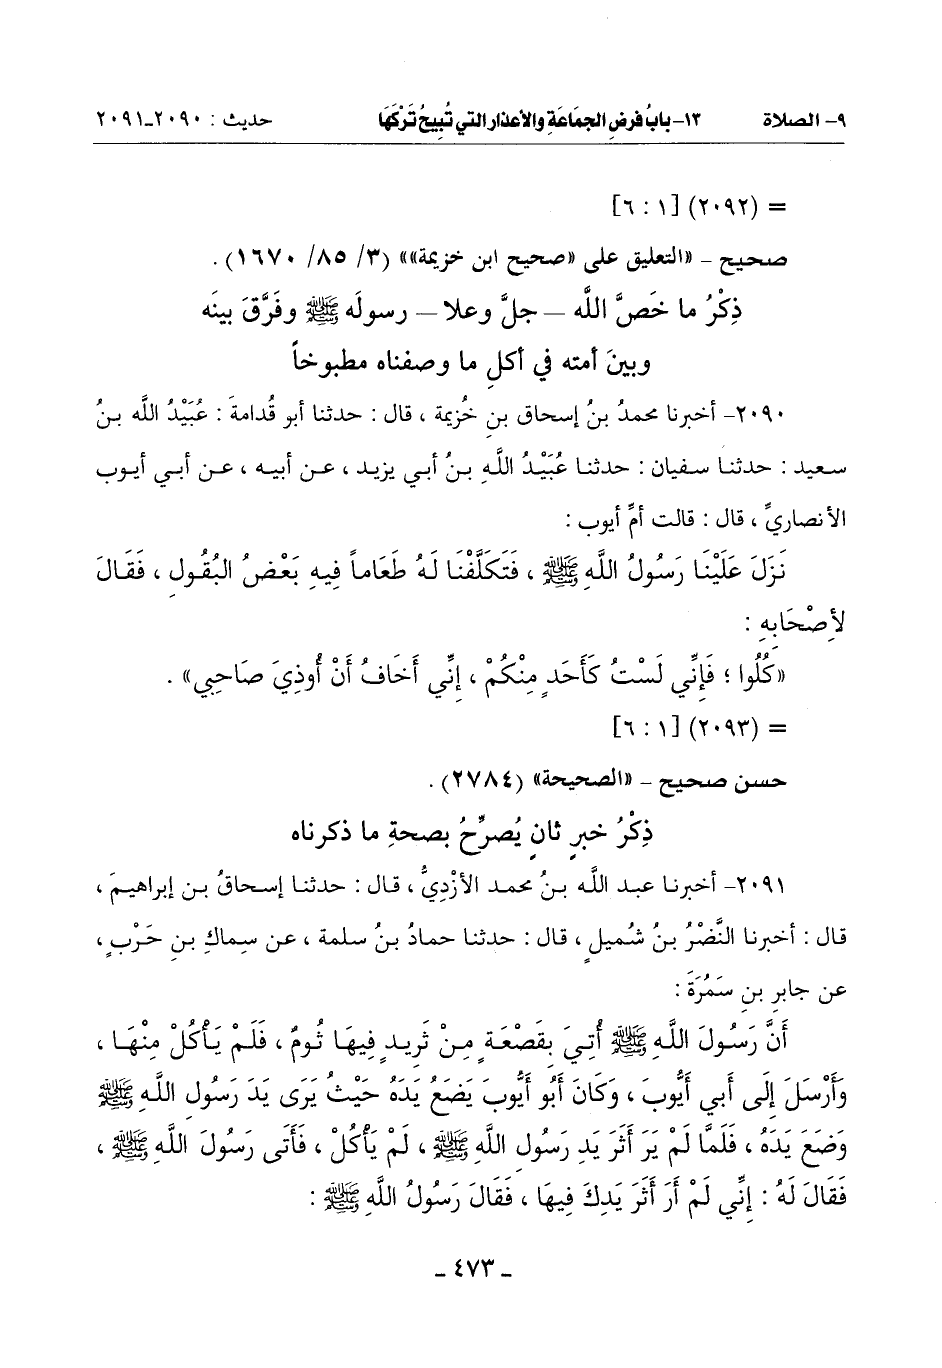 ٩- الصلاة ١٣-بابُ فرضِ الجمَاعَةِ والأعذار التي تُبِيحُ تَرْكَهَا حديث : ٢٠٩٠-٢٠٩١
= (٢٠٩٢) [١ : ٦]
صحيح - «التعليق على «صحيح ابن خزيمة»» (٣/ ٨٥/ ١٦٧٠) .
ذِكْرُ ما خَصَّ اللَّه – جلَّ وعلا – رسولَه ﷺ وفَرَّقَ بينَه
وبينَ أمته في أكلِ ما وصفناه مطبوخاً
٢٠٩٠- أخبرنا محمدُ بنُ إسحاق بنِ خُزيمة ، قال : حدثنا أبو قُدامةَ : عُبَيْدُ اللَّه بنُ
سعيد : حدثنا سفيان : حدثنا عُبَيْدُ اللَّهِ بنُ أبي يزيد ، عن أبيه ، عن أبي أيوب
الأنصاريِّ ، قال : قالت أمُّ أيوب :
نَزَلَ عَلَيْنَا رَسُولُ اللَّهِ ﷺ ، فَتَكَلَّفْنَا لَهُ طَعَاماً فِيهِ بَعْضُ البُقُولِ ، فَقَالَ
لأِصْحَابِهِ :
«كُلُوا ؛ فَإِنِّي لَسْتُ كَأَحَدٍ مِنْكُمْ ، إِنِّي أَخَافُ أَنْ أُوذِيَ صَاحِبِي» .
= (٢٠٩٣) [١ : ٦]
حسن صحيح - «الصحيحة» (٢٧٨٤) .
ذِكْرُ خبرٍ ثانٍ يُصرِّحُ بصحةِ ما ذكرناه
٢٠٩١- أخبرنا عبد اللَّه بنُ محمد الأزْديُّ ، قال : حدثنا إسحاقُ بن إبراهيمَ ،
قال : أخبرنا النَّضْرُ بنُ شُميلٍ ، قال : حدثنا حمادُ بنُ سلمة ، عن سِماكِ بنِ حَرْبٍ ،
عن جابرِ بنِ سَمُرَةَ :
أَنَّ رَسُولَ اللَّهِ ﷺ أُتِيَ بِقَصْعَةٍ مِنْ ثَرِيدٍ فِيهَا ثُومٌ ، فَلَمْ يَأْكُلْ مِنْهَا ،
وَأَرْسَلَ إِلَى أَبي أَيُّوبَ ، وَكَانَ أَبُو أَيُّوبَ يَضَعُ يَدَهُ حَيْثُ يَرَى يَدَ رَسُولِ اللَّهِ ﷺ
وَضَعَ يَدَهُ ، فَلَمَّا لَمْ يَرَ أَثَرَ يَدِ رَسُولِ اللَّهِ ﷺ ، لَمْ يَأْكُلْ ، فَأَتَى رَسُولَ اللَّهِ ﷺ ،
فَقَالَ لَهُ : إِنِّي لَمْ أَرَ أَثَرَ يَدِكَ فِيهَا ، فَقَالَ رَسُولُ اللَّهِ ﷺ :
- ٤٧٣ -